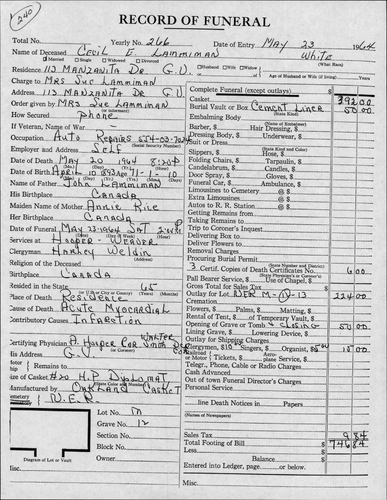 240
RECORD OF FUNERAL
Total No. Yearly No. 266 Date of Entry May 23 1964
Name of Deceased Cecil E. Lammiman White
Married Single Widowed Divorced (What Race)
Residence 113 Manzanita Dr. G.V. Husband Wife Widow
Age of Husband or Wife (if living) Years
Charge to Mrs Sue Lammiman
Address 113 Manzanita Dr G.V.
Order given by Mrs Sue Lammiman
How Secured phone
If Veteran, Name of War
Occupation Auto Repairs
(Social Security Number)
Employer and Address Self
Date of Death May 20 1964 8:20 P
Date of Birth April 10 1893 Age 71-1-10
Name of Father John Lammiman
His Birthplace Canada
Maiden Name of Mother Annie Rice
Her Birthplace Canada
Date of Funeral May 23-1964 Sat 2:00 P
Services at Hooper-Weaver
Clergyman Harley Weldin
Religion of the Deceased
Birthplace Canada
Resided in the State 65
(U.S. or City or County) (Years) (Months)
Place of Death Residence
Cause of Death Acute Myocardial
Contributory Causes Infarction
Certifying Physician
Its Address G.V.
Remains to
Size of Casket #20 H.P. Diplomat
Manufactured by Oakland Casket
Cemetery N.E.R.
Lot No. M
Grave No. 12
Section No.
Block No.
Owner
Diagram of Lot or Vault
Complete Funeral (except outlays) $
Casket 392.00
Burial Vault or Box Cement Liner 50.00
(State Kind)
Embalming Body
(Name of Embalmer)
Barber, $ Hair Dressing, $
Dressing Body, $ Underwear, $
Suit or Dress
(State Kind and Color)
Slippers, $ Hose, $
Folding Chairs, $ Tarpaulin, $
Candelabrum, $ Candles, $
Door Spray, $ Gloves, $
Funeral Car, $ Ambulance, $
Limousines to Cemetery @ $
Extra Limousines @ $
Autos to R. R. Station @ $
Getting Remains from
Taking Remains to
Trip to Coroner's Inquest
Delivering Box to
Deliver Flowers to
Removal Charges
Procuring Burial Permit
(State Number and District)
3 Certif. Copies of Death Certificates No. 6.00
(State Physician's or Coroner's)
Pall Bearer Service, $ Use of Chapel, $
Gross Total for Sales Tax $
Outlay for Lot NER M-12-13 224.00
Cremation
Flowers, $ Palms, $ Matting, $
Rental of Tent, $ of Temporary Vault, $
Opening of Grave or Tomb & closing 50.00
Lining Grave, $ Lowering Device, $
Outlay for Shipping Charges
Clergymen, $10 Singers, $ Organist, $5.00 15.00
Railroad or Motor Tickets, $ Aeroplane Service, $
Telegr., Phone, Cable or Radio Charges
Cash Advanced
Out of town Funeral Director's Charges
Personal Service
line Death Notices in Papers
(Names of Newspapers)
Sales Tax 9.84
Total Footing of Bill $ 746.84
Less
Balance $
Entered into Ledger, page or below.
Misc.